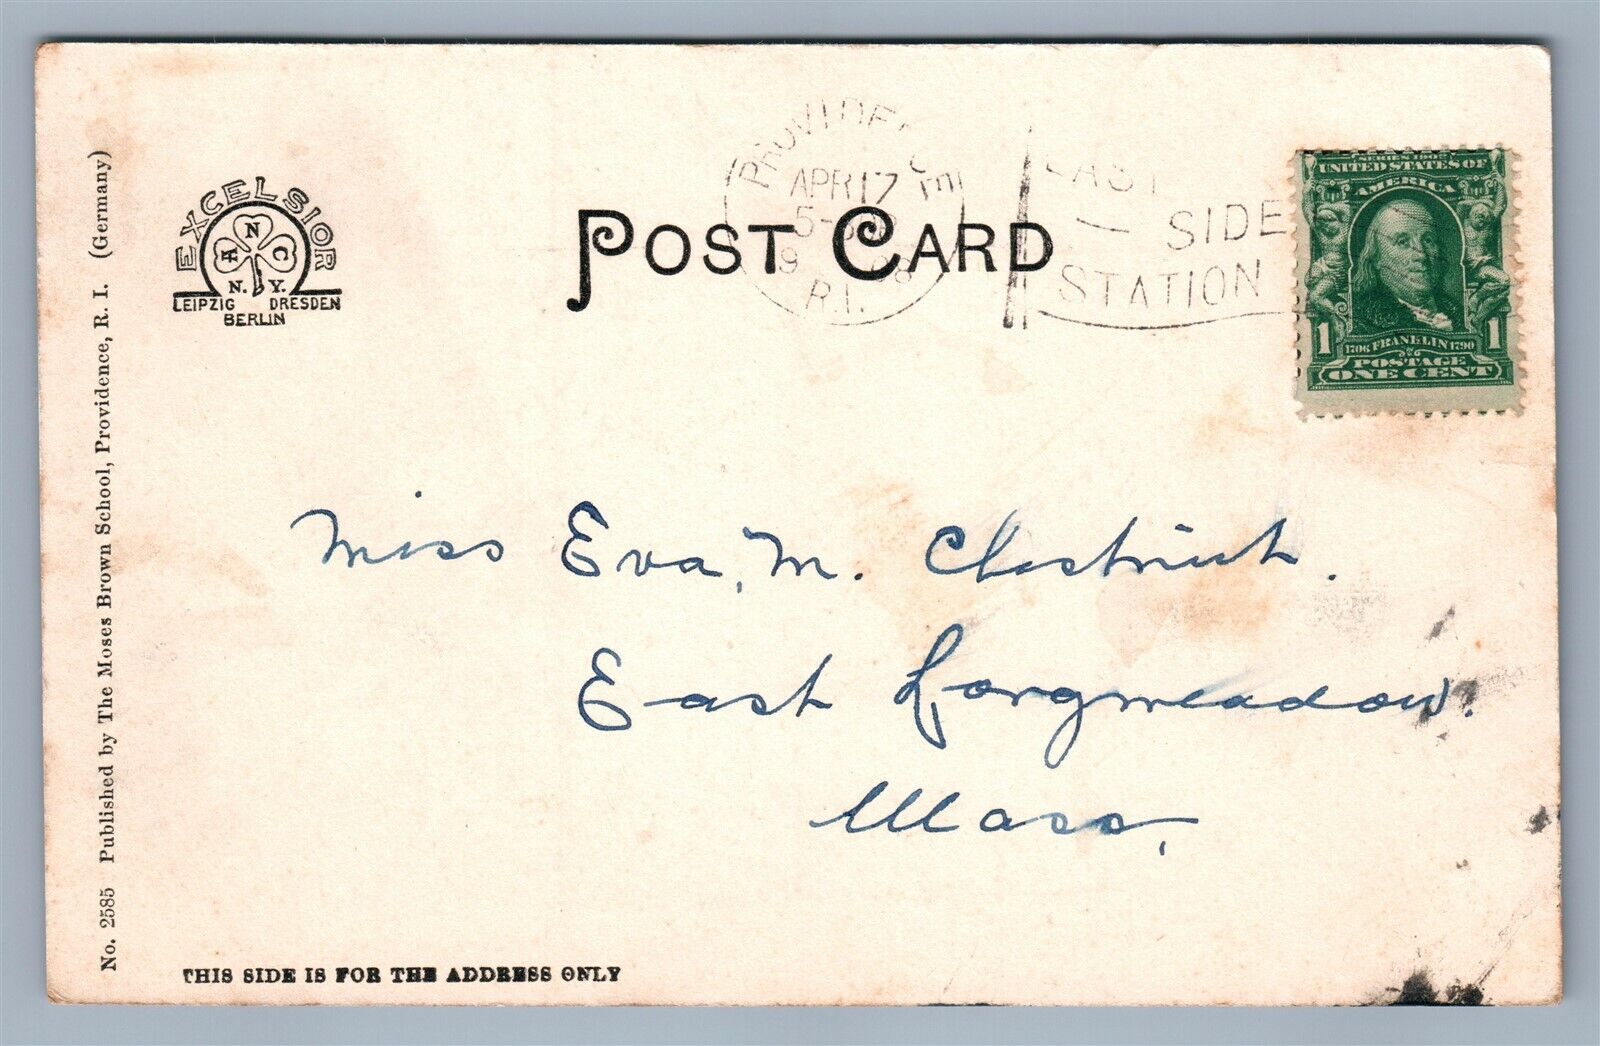 No. 2585 Published by The Moses Brown School, Providence, R. I. (Germany)
EXCELSIOR
A N C
N. Y.
LEIPZIG DRESDEN
BERLIN
POST CARD
PROVIDENCE
APR 17
1908
R.I.
EAST
SIDE
STATION
SERIES 1902
UNITED STATES OF
AMERICA
1 1
1706 FRANKLIN 1790
POSTAGE
ONE CENT
Miss Eva, M.
East Longmeadow.
Mass,
THIS SIDE IS FOR THE ADDRESS ONLY